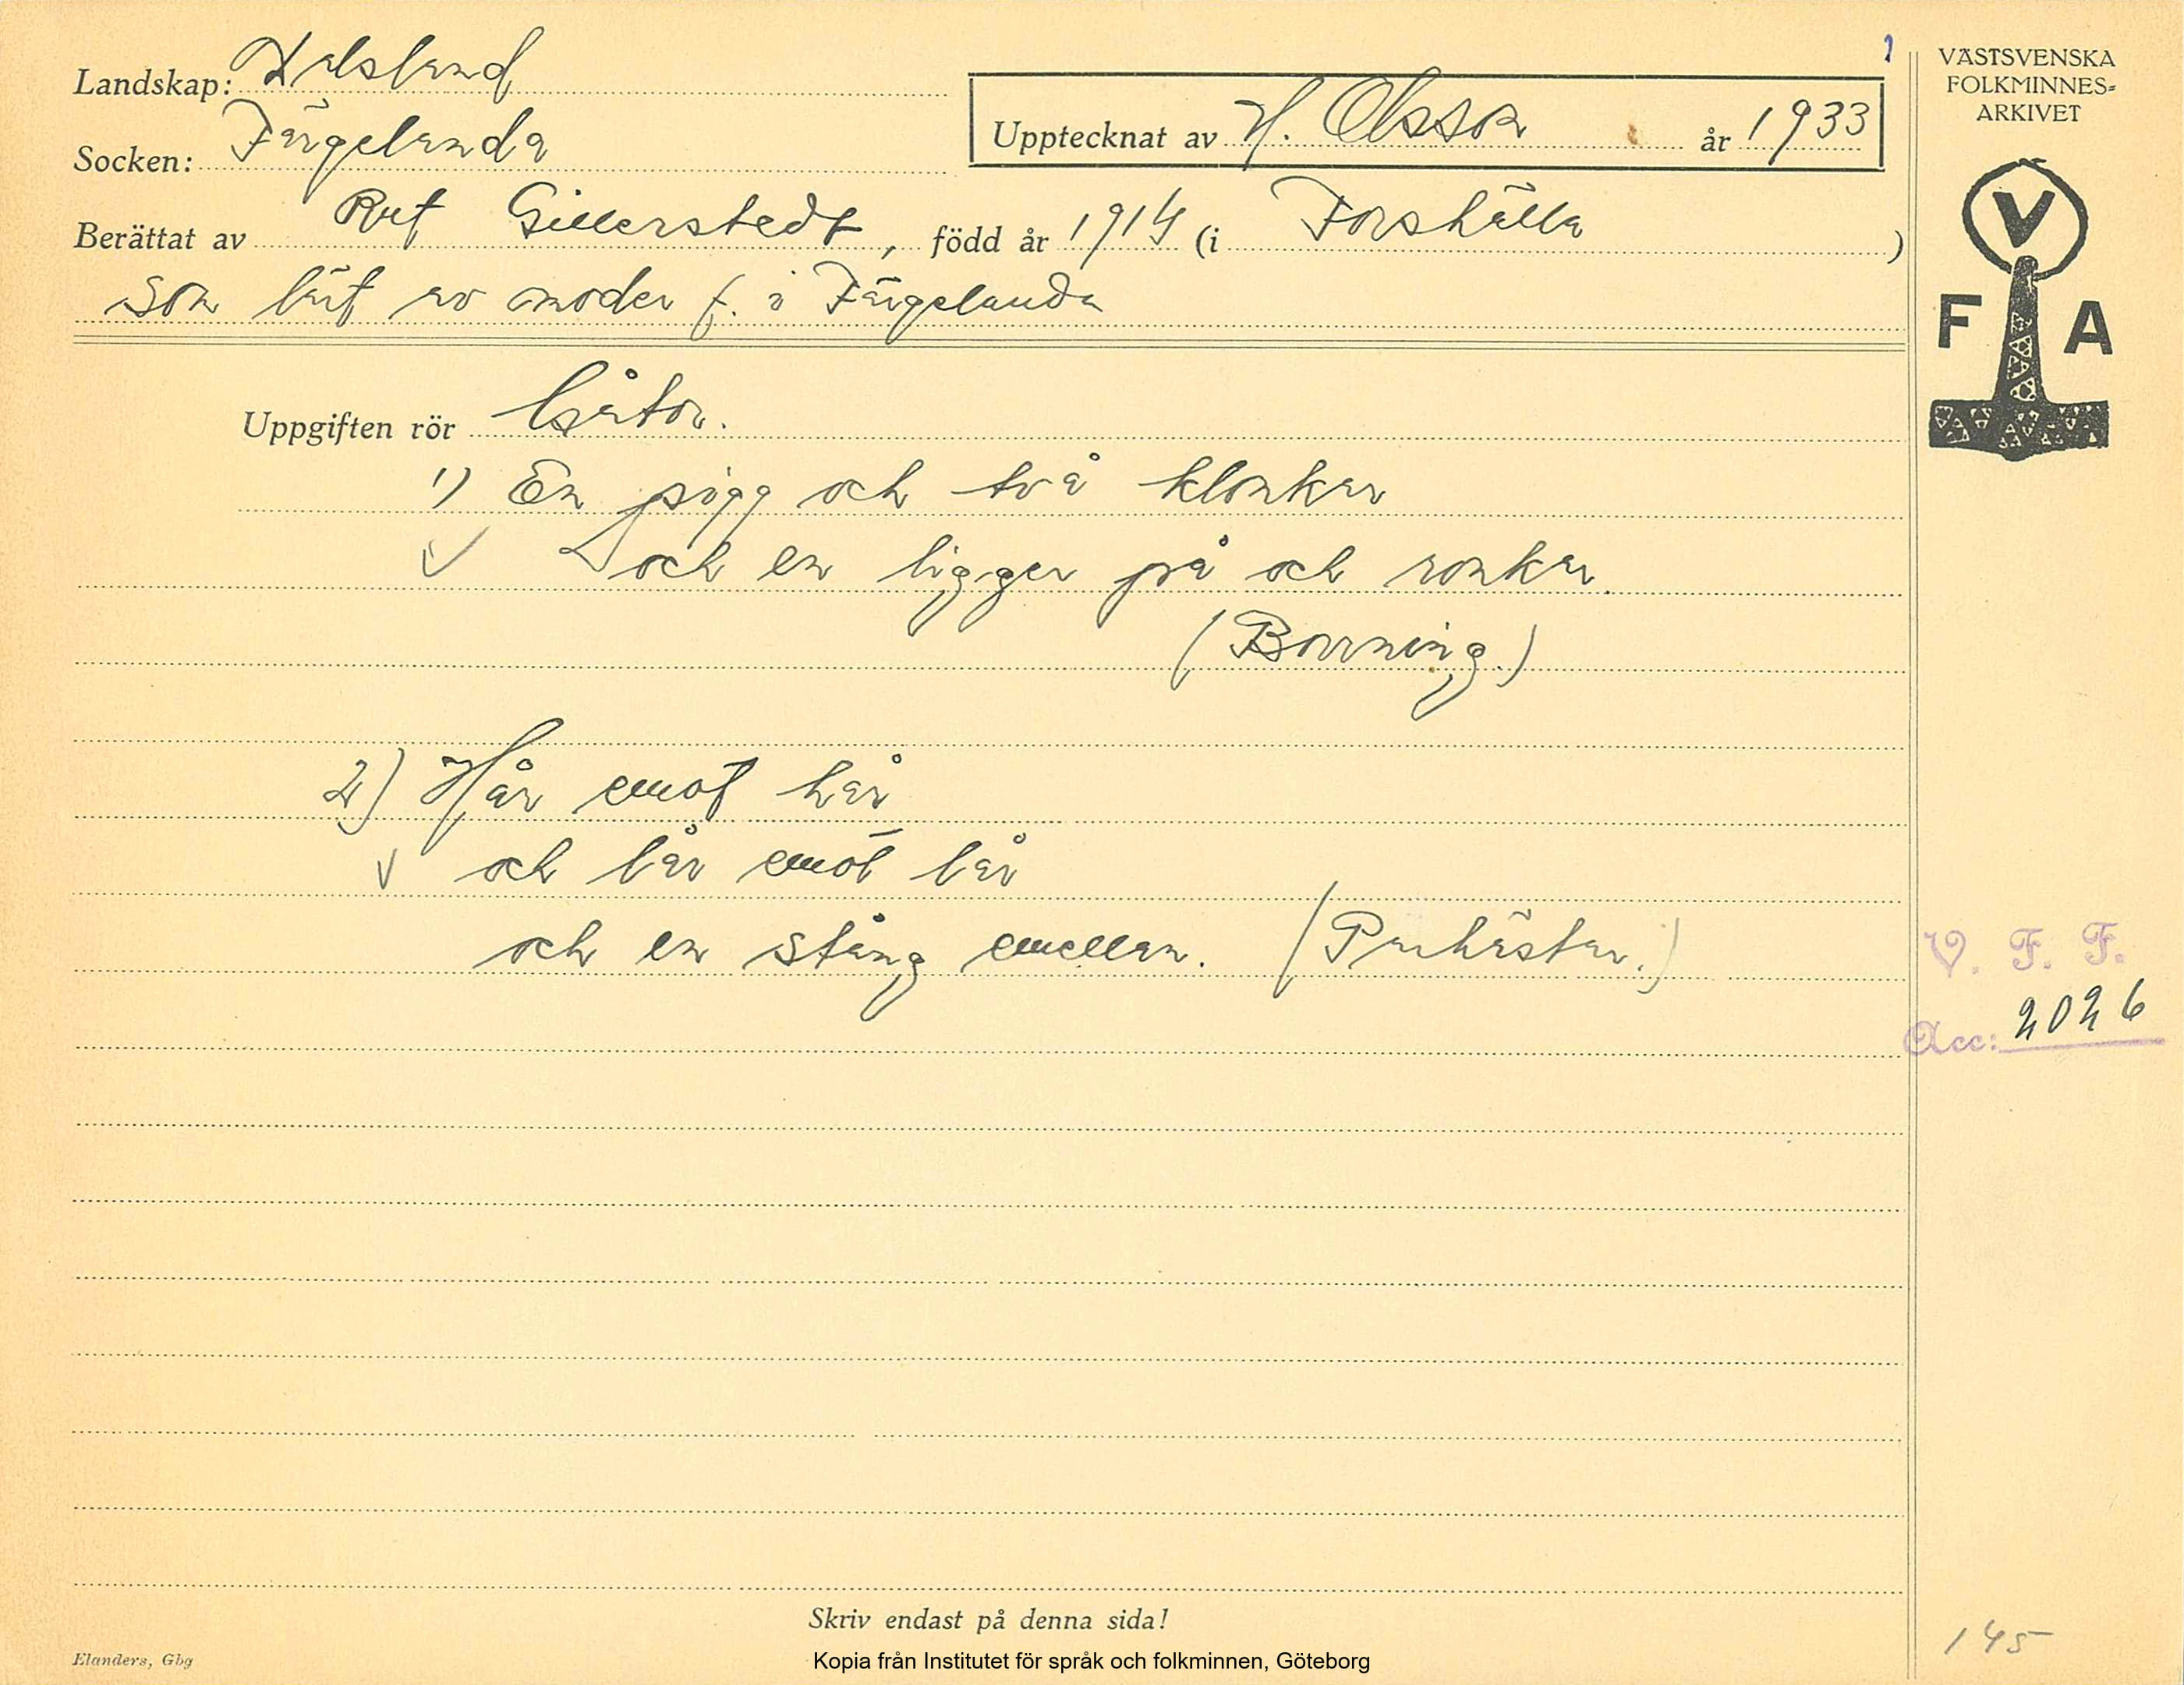 1
VÄSTSVENSKA
FOLKMINNES-
ARKIVET
V
F A
Landskap: Dalsland
Socken: Färgelanda
Upptecknat av H. Olsson år 1933
Berättat av Rut Gillerstedt, född år 1914 (i Forshälla)
som lärt av moder f. i Färgelanda
Uppgiften rör Gåtor.
1) En pigg och två klonkar
och en ligger på och ronkar.
(Borrning.)
2) Hår emot hår
och lår emot lår
och en stång emellan. (Parhästar.)
V. F. F.
Acc: 2026
Skriv endast på denna sida!
Elanders, Gbg
Kopia från Institutet för språk och folkminnen, Göteborg
145